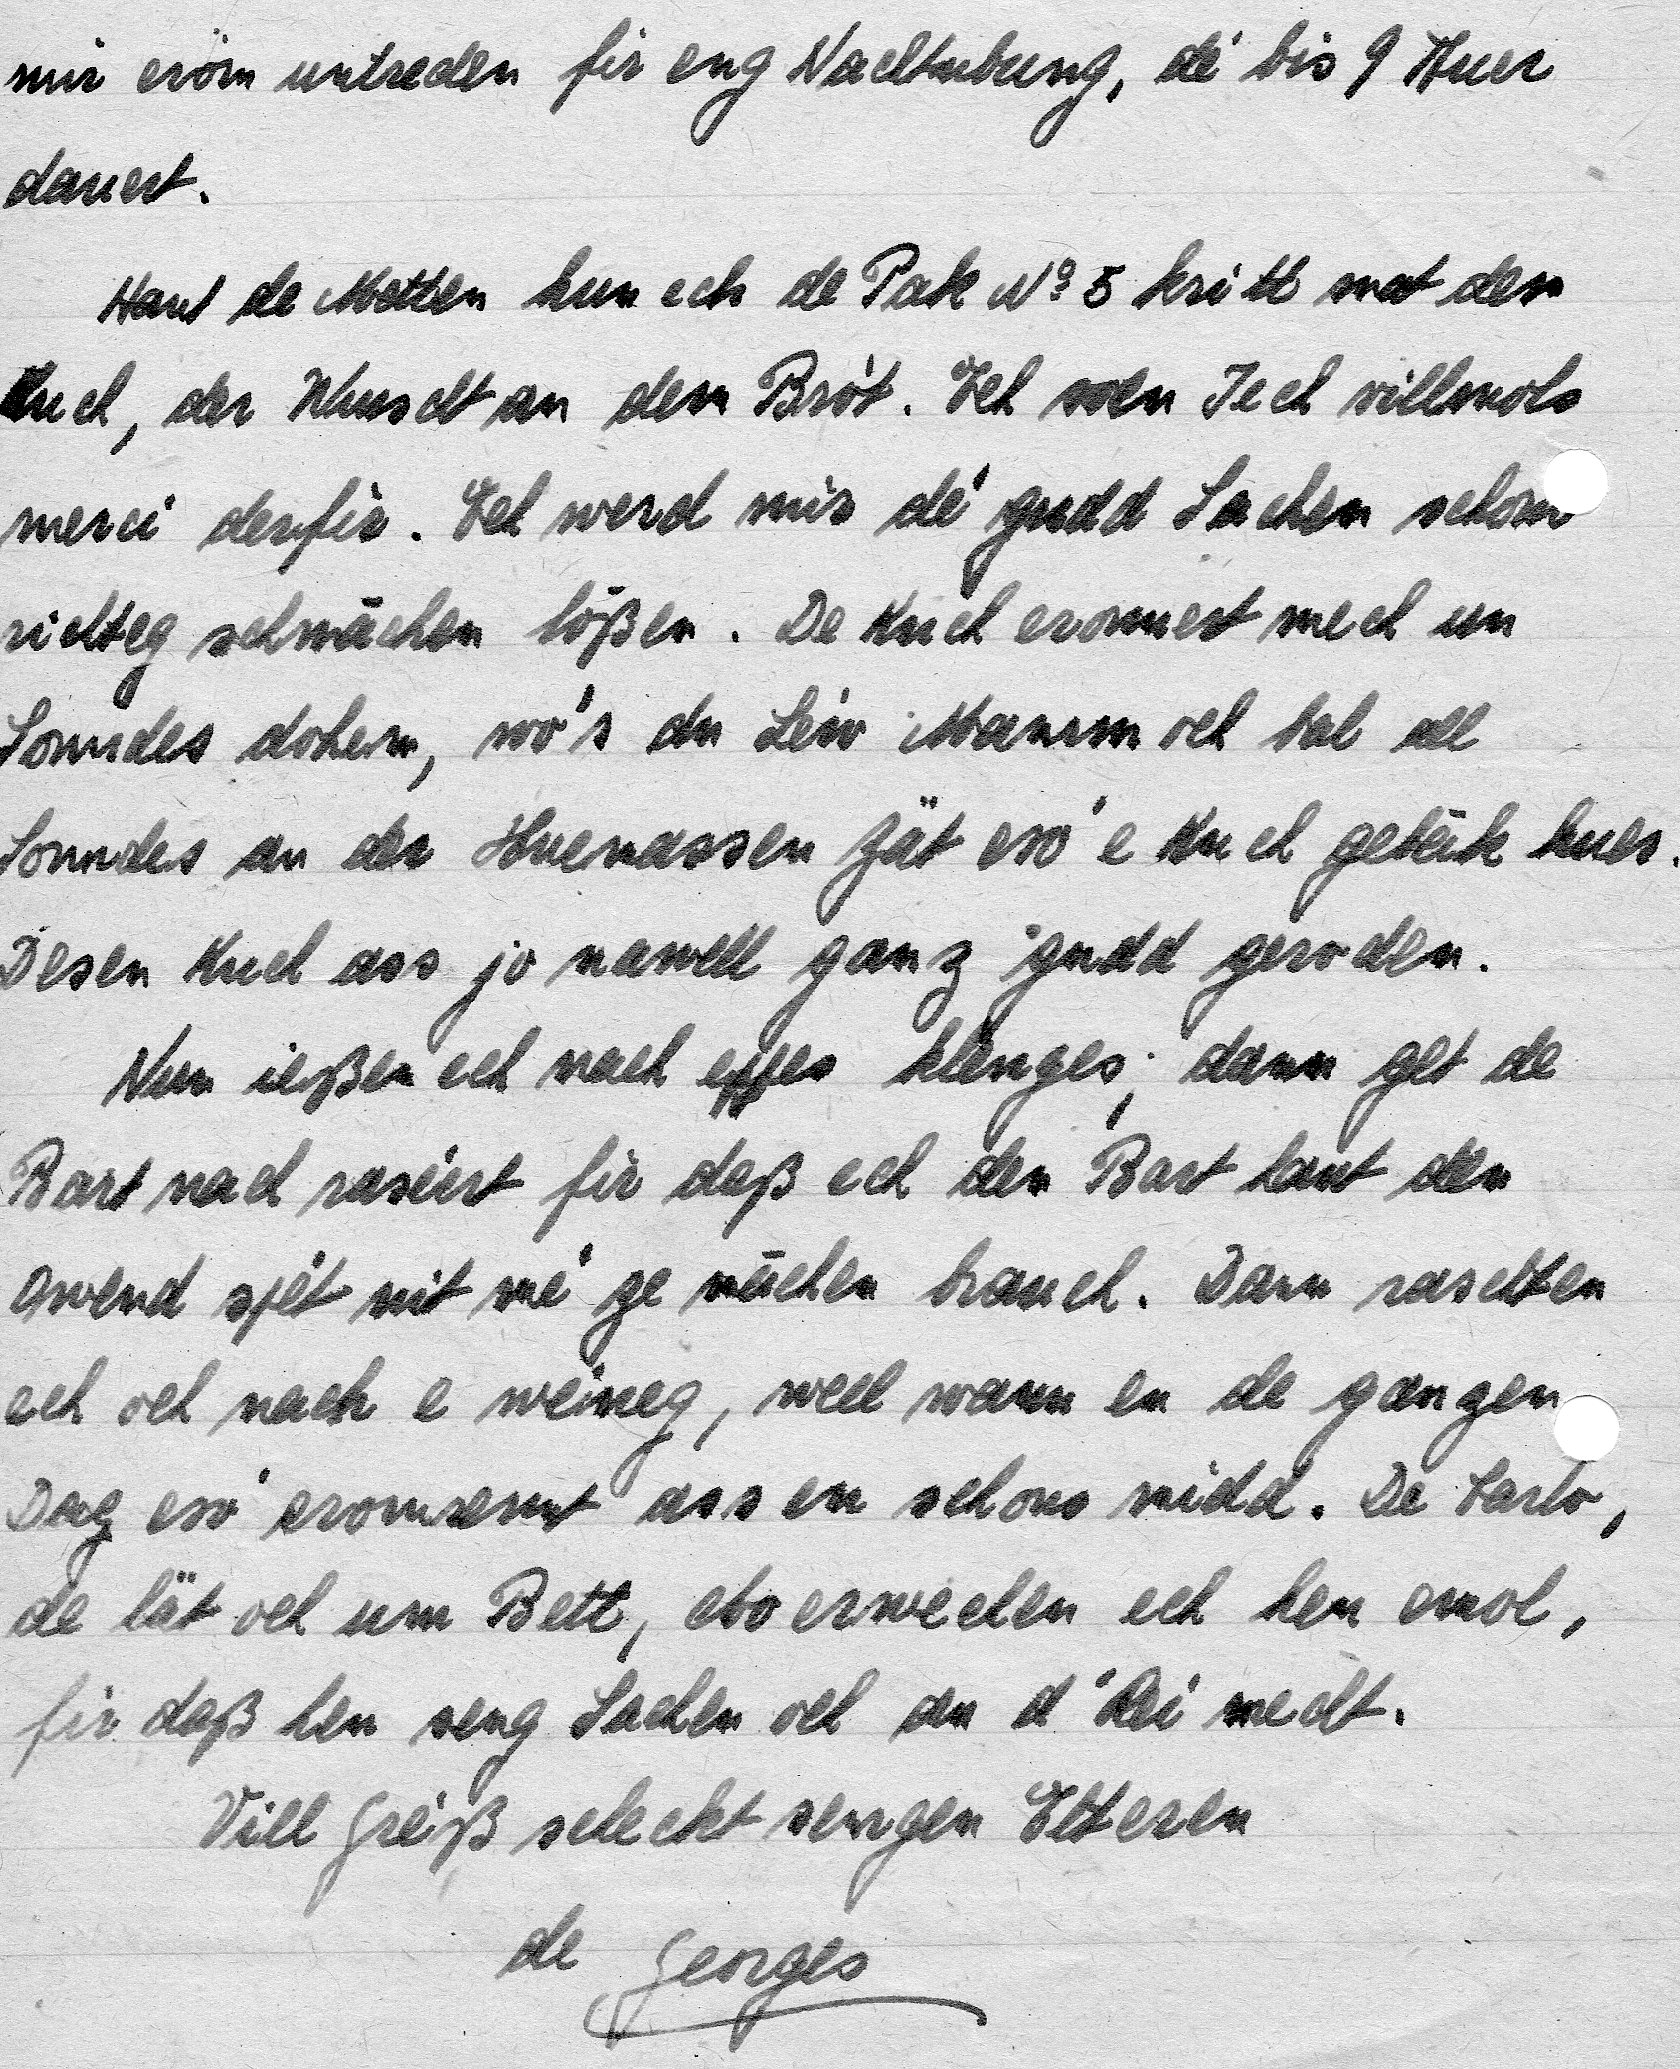 mir eröm untreden fir eng Nachtubung, dé bis 9 Auer
dauert.
Haut de Metten hun ech de Pak Nº 5 kritt mat dem
Kuch, der Wuscht an dem Brót. Ech soen Iech villmols
merci derfir. Ech werd mir dé gudd Sachen schon
richteg schmāchen lößen. De Kuch eronnert mech un
Sonndes dohem, wo's du Léiw Mamm och bal all
Sonndes an der Huenassen Zät esó e Kuch gebāk hues.
Desen Kuch ass jo nawell ganz gudd geroden.
Nun ießen ech nach eppes klenges; dann get de
Bart nach raséiert fir daß ech den Bart haut den
Owend spét nit mé ze māchen brauch. Dann raschten
ech och nach e weineg, well wann en de ganzen
Dag esó eromrennt ass en schons midd. De Carlo,
de lät och um Bett, elo erwechen ech hen emol,
fir daß hen seng Sachen och an d'Rei mecht.
Vill Gréiß scheckt sengen Elteren
de Georges